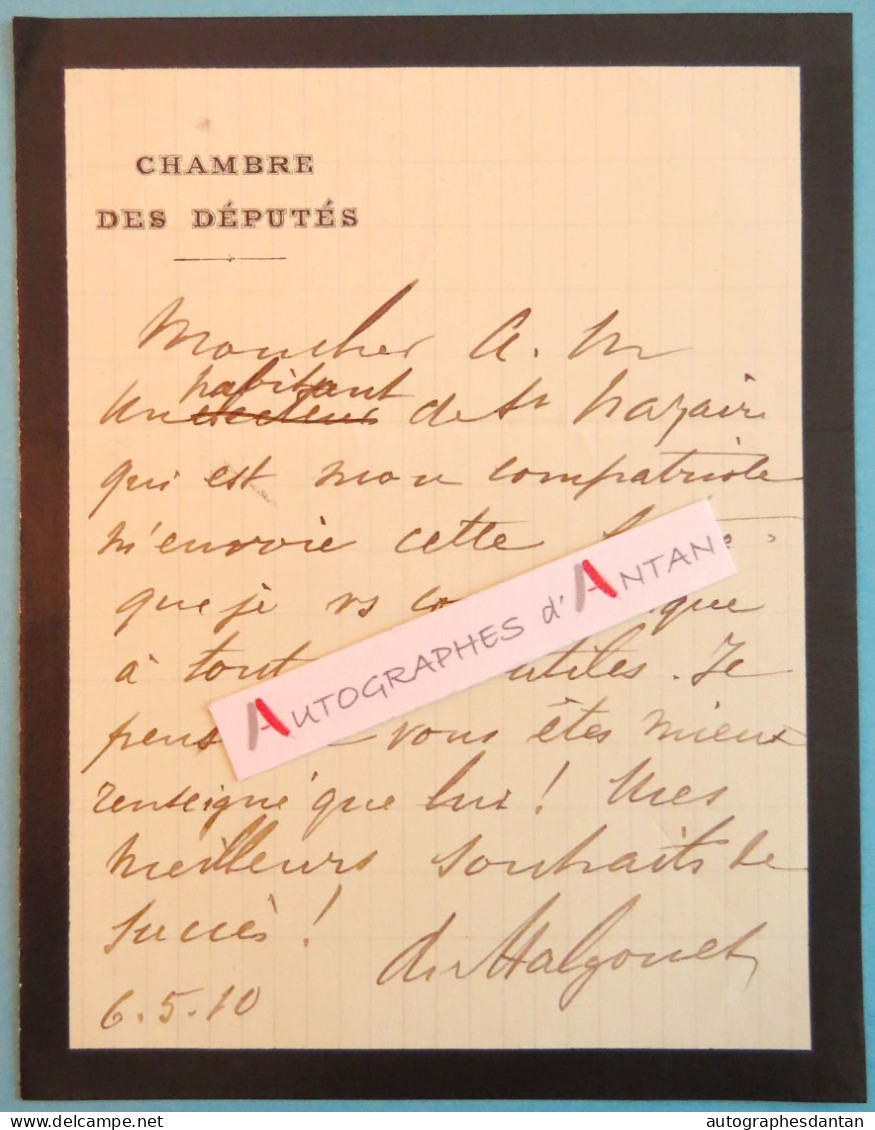 CHAMBRE
DES DÉPUTÉS
Mon cher A. M
habitant
Un electeur de St Nazaire
qui est mon compatriote
m'envoie cette
que je vs co que
à tout utiles. Je
pens vous êtes mieux
renseigné que lui ! Mes
meilleurs souhaits de
succès !
du Halgouet
6.5.10
AUTOGRAPHES d'ANTAN
autographesdantan